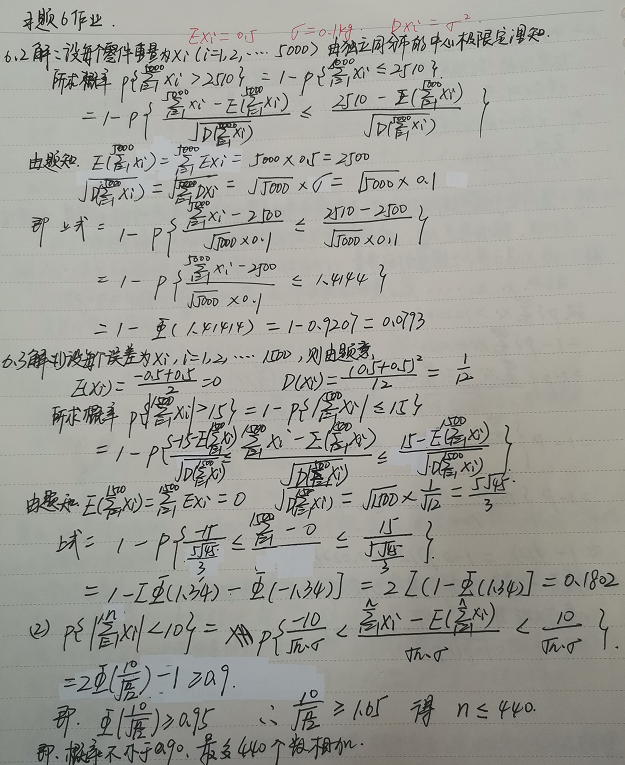 习题6作业.
EXi=0.5 σ=0.1kg DXi=σ²
6.2解:设每个零件重量为Xi(i=1,2,…5000)由独立同分布的中心极限定理知.
所求概率 P{∑_{i=1}^{5000}Xi>2510} = 1-P{∑_{i=1}^{5000}Xi≤2510}.
= 1-P{ (∑_{i=1}^{5000}Xi-E(∑_{i=1}^{5000}Xi))/√D(∑_{i=1}^{5000}Xi) ≤ (2510-E(∑_{i=1}^{5000}Xi))/√D(∑_{i=1}^{5000}Xi) }
由题知. E(∑_{i=1}^{5000}Xi)=∑_{i=1}^{5000}EXi= 5000×0.5=2500
√D(∑_{i=1}^{5000}Xi) = √∑_{i=1}^{5000}DXi = √5000×σ = √5000×0.1
即 上式 = 1-P{ (∑_{i=1}^{5000}Xi-2500)/(√5000×0.1) ≤ (2510-2500)/(√5000×0.1) }
= 1-P{ (∑_{i=1}^{5000}Xi-2500)/(√5000×0.1) ≤ 1.4144 }
= 1-Φ(1.41414) = 1-0.9207=0.0793
6.3解(1)设每个误差为Xi,i=1,2,…1500,则由题意,
E(Xi)= (-0.5+0.5)/2 =0 D(Xi)= (0.5+0.5)²/12 = 1/12
所求概率 P{|∑_{i=1}^{1500}Xi|>15} = 1-P{|∑_{i=1}^{1500}Xi|≤15}
= 1-P{ (-15-E(∑_{i=1}^{1500}Xi))/√D(∑_{i=1}^{1500}Xi) ≤ (∑_{i=1}^{1500}Xi-E(∑_{i=1}^{1500}Xi))/√D(∑_{i=1}^{1500}Xi) ≤ (15-E(∑_{i=1}^{1500}Xi))/√D(∑_{i=1}^{1500}Xi) }
由题知 E(∑_{i=1}^{1500}Xi)=∑_{i=1}^{1500}EXi=0 √D(∑_{i=1}^{1500}Xi) = √1500×1/√12 = 5√45/3
上式= 1-P{ -15/(5√45/3) ≤ ∑_{i=1}^{1500}-0 ≤ 15/(5√45/3) }.
= 1-[Φ(1.34)-Φ(-1.34)] = 2[(1-Φ(1.34)]=0.1802
(2) P{|∑_{i=1}^{n}Xi|<10} = P{ -10/(√n·σ) < (∑_{i=1}^{n}Xi-E(∑_{i=1}^{n}Xi))/(√n·σ) < 10/(√n·σ) }.
=2Φ(10/√(n/12))-1≥0.9.
即. Φ(10/√(n/12))≥0.95 ∴ 10/√(n/12) ≥1.65 得 n≤440.
即.概率不小于0.90,最多440个数相加.